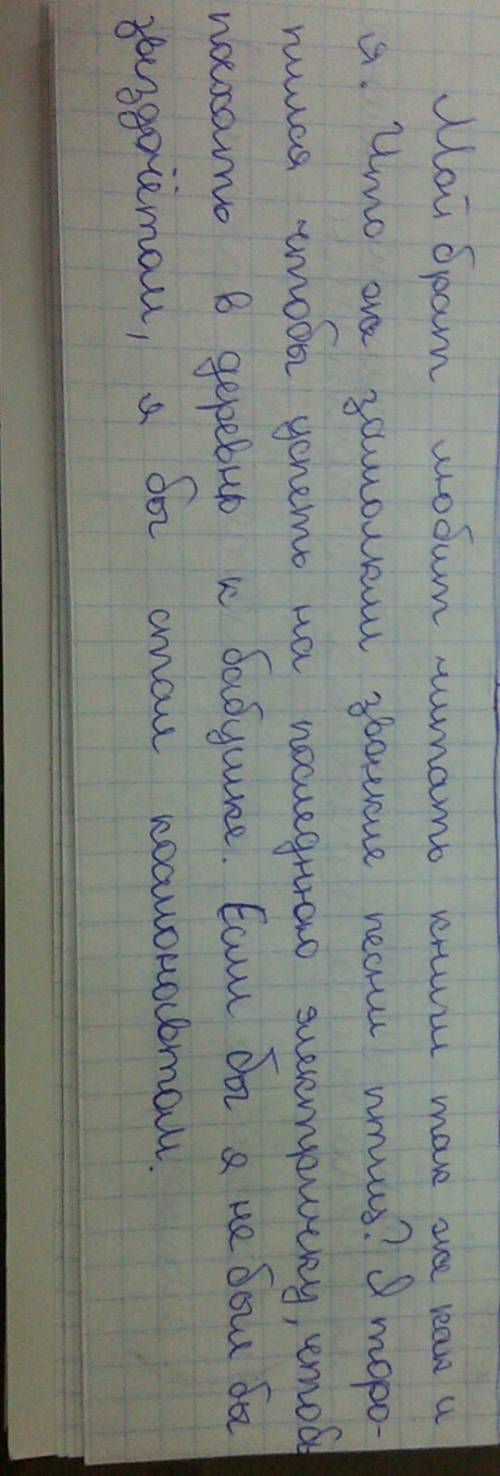 Мой брат любит читать книги так же как и
я. Что же замолкли звонкие песни птиц? Я торо-
пился чтобы успеть на последнюю электричку, чтобы
поехать в деревню к бабушке. Если бы я не был бы
звездочётом, я бы стал космонавтом.